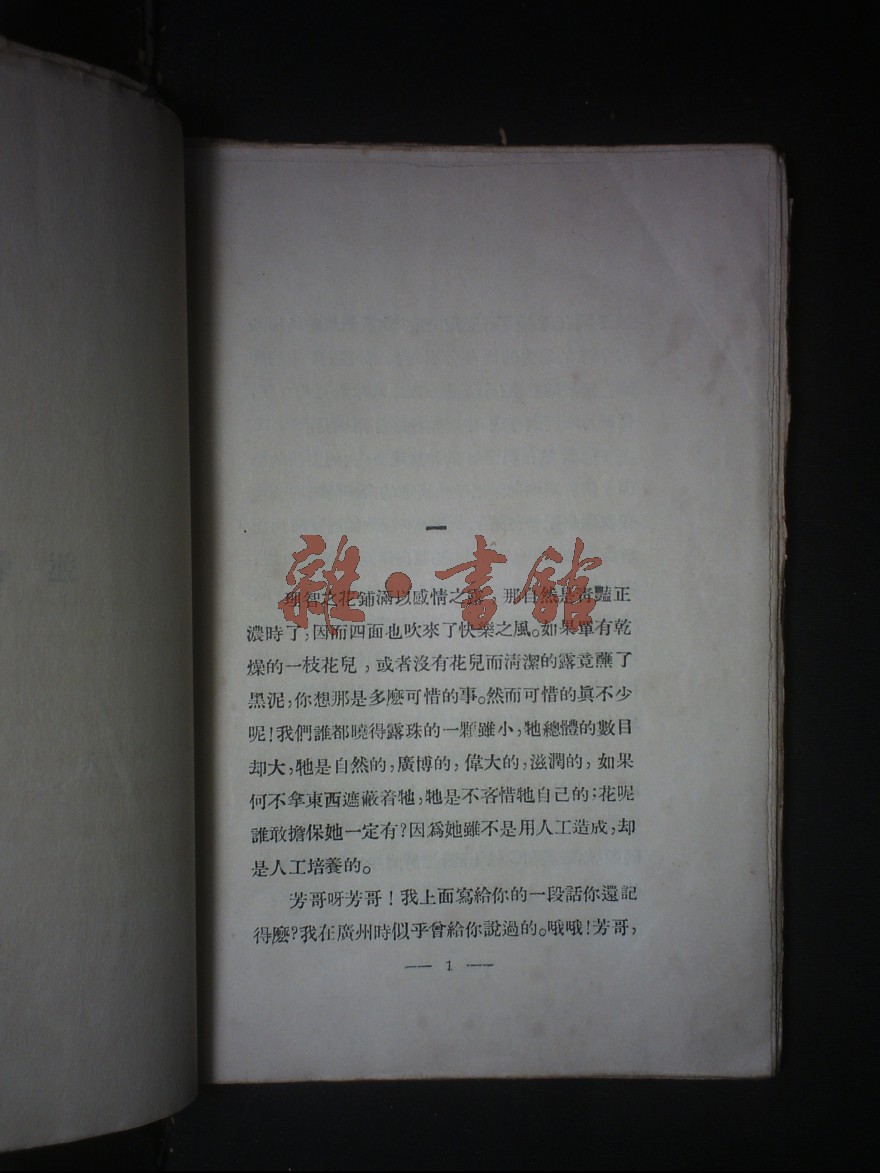 一
理智之花鋪滿以感情之露，那自然是毒豔正
濃時了，因而四面也吹來了快樂之風。如果單有乾
燥的一枝花兒，或者沒有花兒而清潔的露竟蘸了
黑泥，你想那是多麽可惜的事。然而可惜的眞不少
呢！我們誰都曉得露珠的一顆雖小，牠總體的數目
却大，牠是自然的，廣博的，偉大的，滋潤的，如果
何不拿東西遮蔽着牠，牠是不吝惜牠自己的；花呢
誰敢擔保她一定有？因爲她雖不是用人工造成，却
是人工培養的。
芳哥呀芳哥！我上面寫給你的一段話你還記
得麽？我在廣州時似乎曾給你說過的。哦哦！芳哥，
—— 1 ——
雜·書館